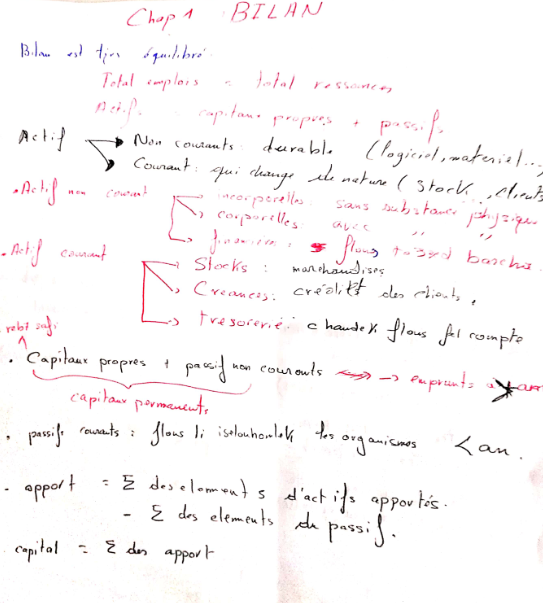 Chap 1 BILAN
Bilan est tjrs équilibré.
Total emplois = total ressources
Actifs = capitaux propres + passifs
Actif → Non courants : durable (logiciel, materiel...
→ Courant : qui change de nature ( Stock, clients
• Actif non courant → incorporelles : sans substance physique
→ corporelles avec " "
→ financière : flous
• Actif courant → Stocks : marchandises
→ Creances : crédits des clients,
→ tresorerie : flous fel compte
• Capitaux propres + passif non courants → emprunts
capitaux permanents
• passifs courants : flous li les organismes < an.
- apport = Σ des elements d'actifs apportés.
- Σ des elements du passif.
capital = Σ des apport